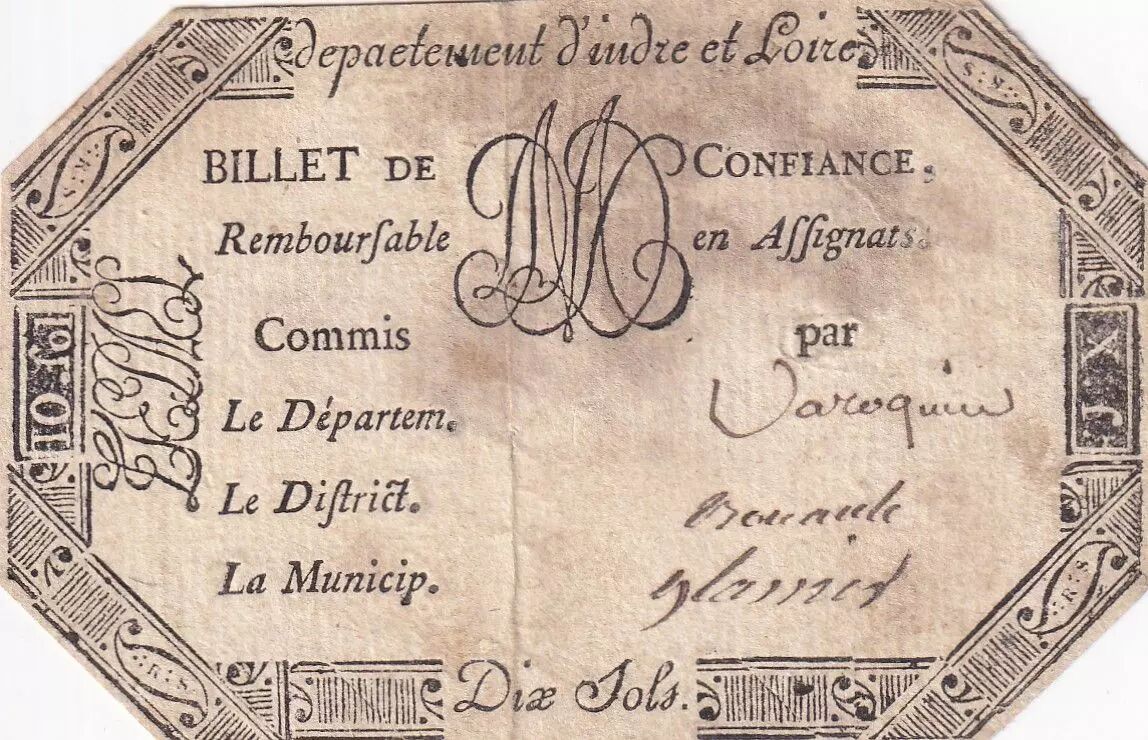 depaetement d'indre et Loire
BILLET DE CONFIANCE,
Rembourſable en Aſſignats.
Commis par
Le Départem. Varoquier
Le Diſtrict.
La Municip.
10
XI
R:S
R:S
R:S
R:S
Dix Sols.